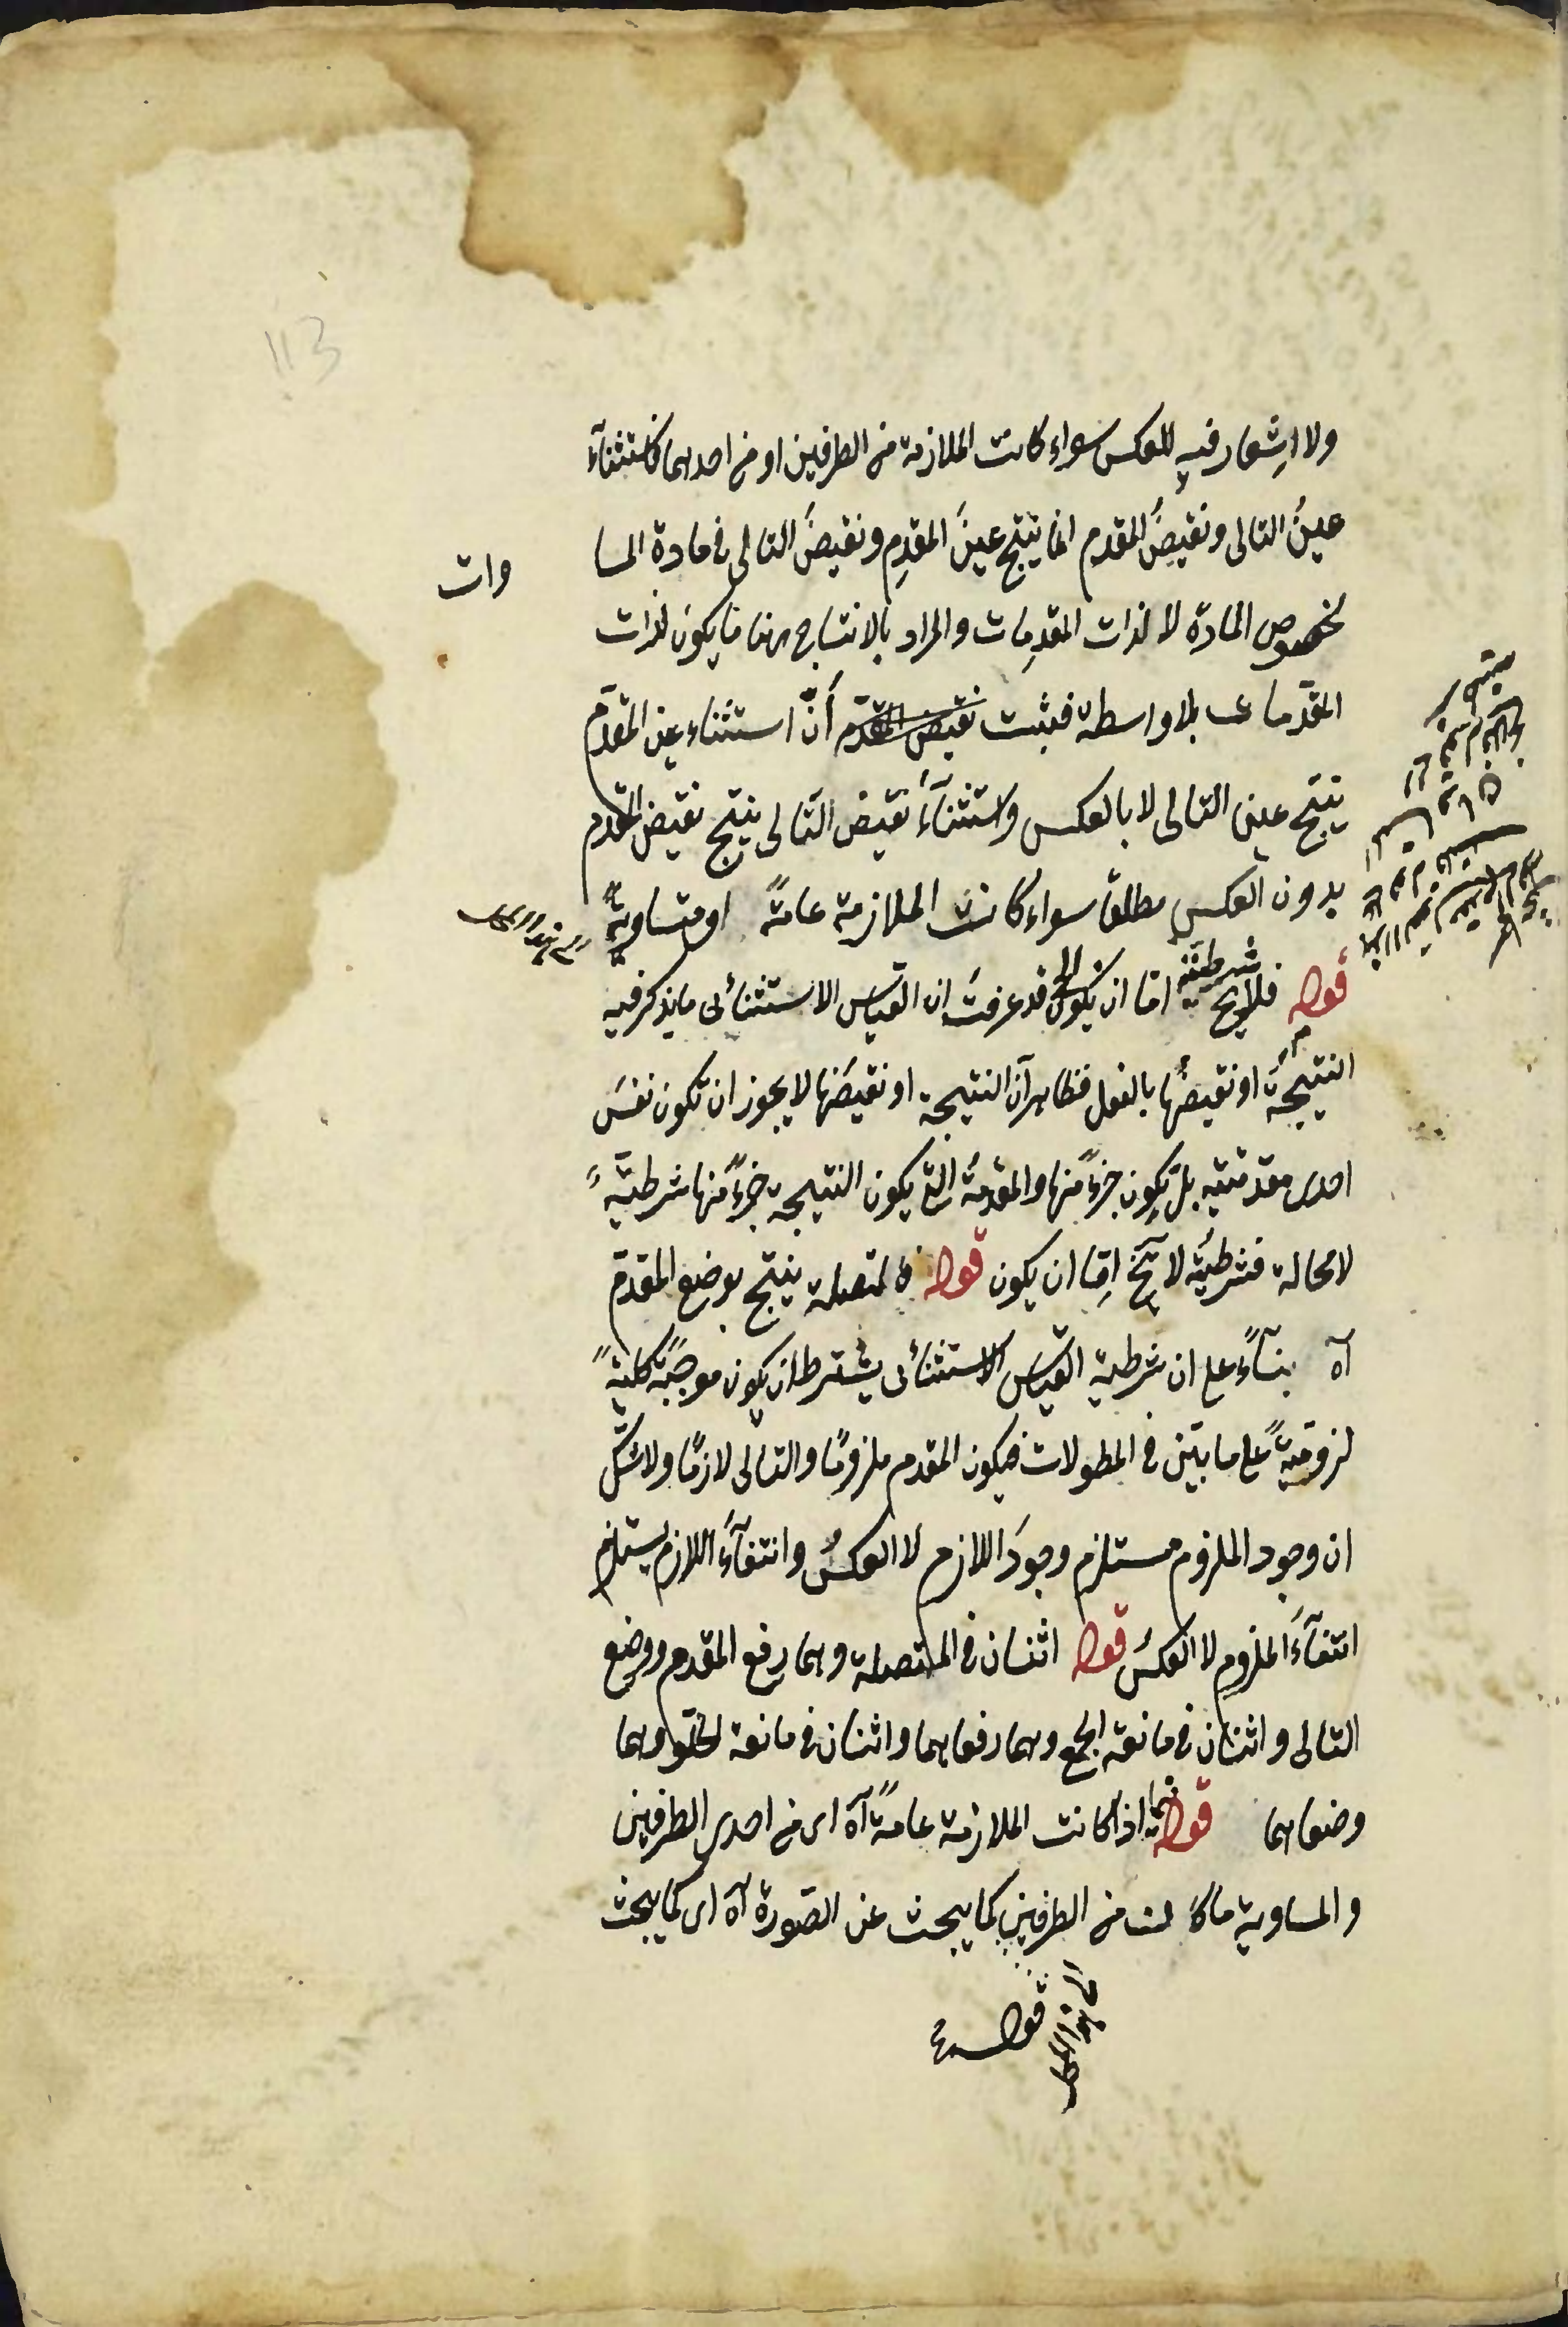 113
ولا اشعار فيه للعكس سواء كانت الملازمة من الطرفين او من احدهما فاستثناء
عين التالى ونقيض المقدم انما ينتج عين المقدم ونقيض التالى فى مادة المسا وات
بخصوص المادة لا لذات المقدمات والمراد بالانتاج هنا ما يكون لذات
المقدمات بلا واسطة فيثبت نقيض المقدم أنّ استثناء عين المقدم
ينتج عين التالى لا بالعكس واستثناء نقيض التالى ينتج نقيض المقدم
بدون العكس مطلقا سواء كانت الملازمة عامة او متساوية
قوله فلا يخ شرطيته اما ان يكون الخ قد عرفت ان القياس الاستثنائى ما يذكر فيه
النتيجة او نقيضها بالفعل فظاهر آن النتيجة او نقيضها لا يجوز ان تكون نفس
احدى مقدمتيه بل يكون جزءً منها والمقدمة التى يكون النتيجة جزءً منها شرطيّة
لا محالة فشرطيته لا يخ اما ان يكون قوله فالمتصلة ينتج بوضع المقدم
آه بنآءً على ان شرطية القياس الاستثنائى يشترط ان يكون موجبة كلية
لزومية على ما بيّن فى المطولات فيكون المقدم ملزومًا والتالى لازمًا ولا شك
ان وجود الملزوم مستلزم وجود اللازم لا العكس وانتفآء اللازم يستلزم
انتفآء الملزوم لا العكس قوله اثنان فى المتصلة وهما رفع المقدم ووضع
التالى واثنان فى مانعة الجمع وهما رفعاهما واثنان فى مانعة الخلو وهما
وضعاهما قوله فيما اذا كانت الملازمة عامة آه اى من احدى الطرفين
والمساوية ما كانت من الطرفين كما يبحث عن الصورة آه اى كما يبحث
قوله